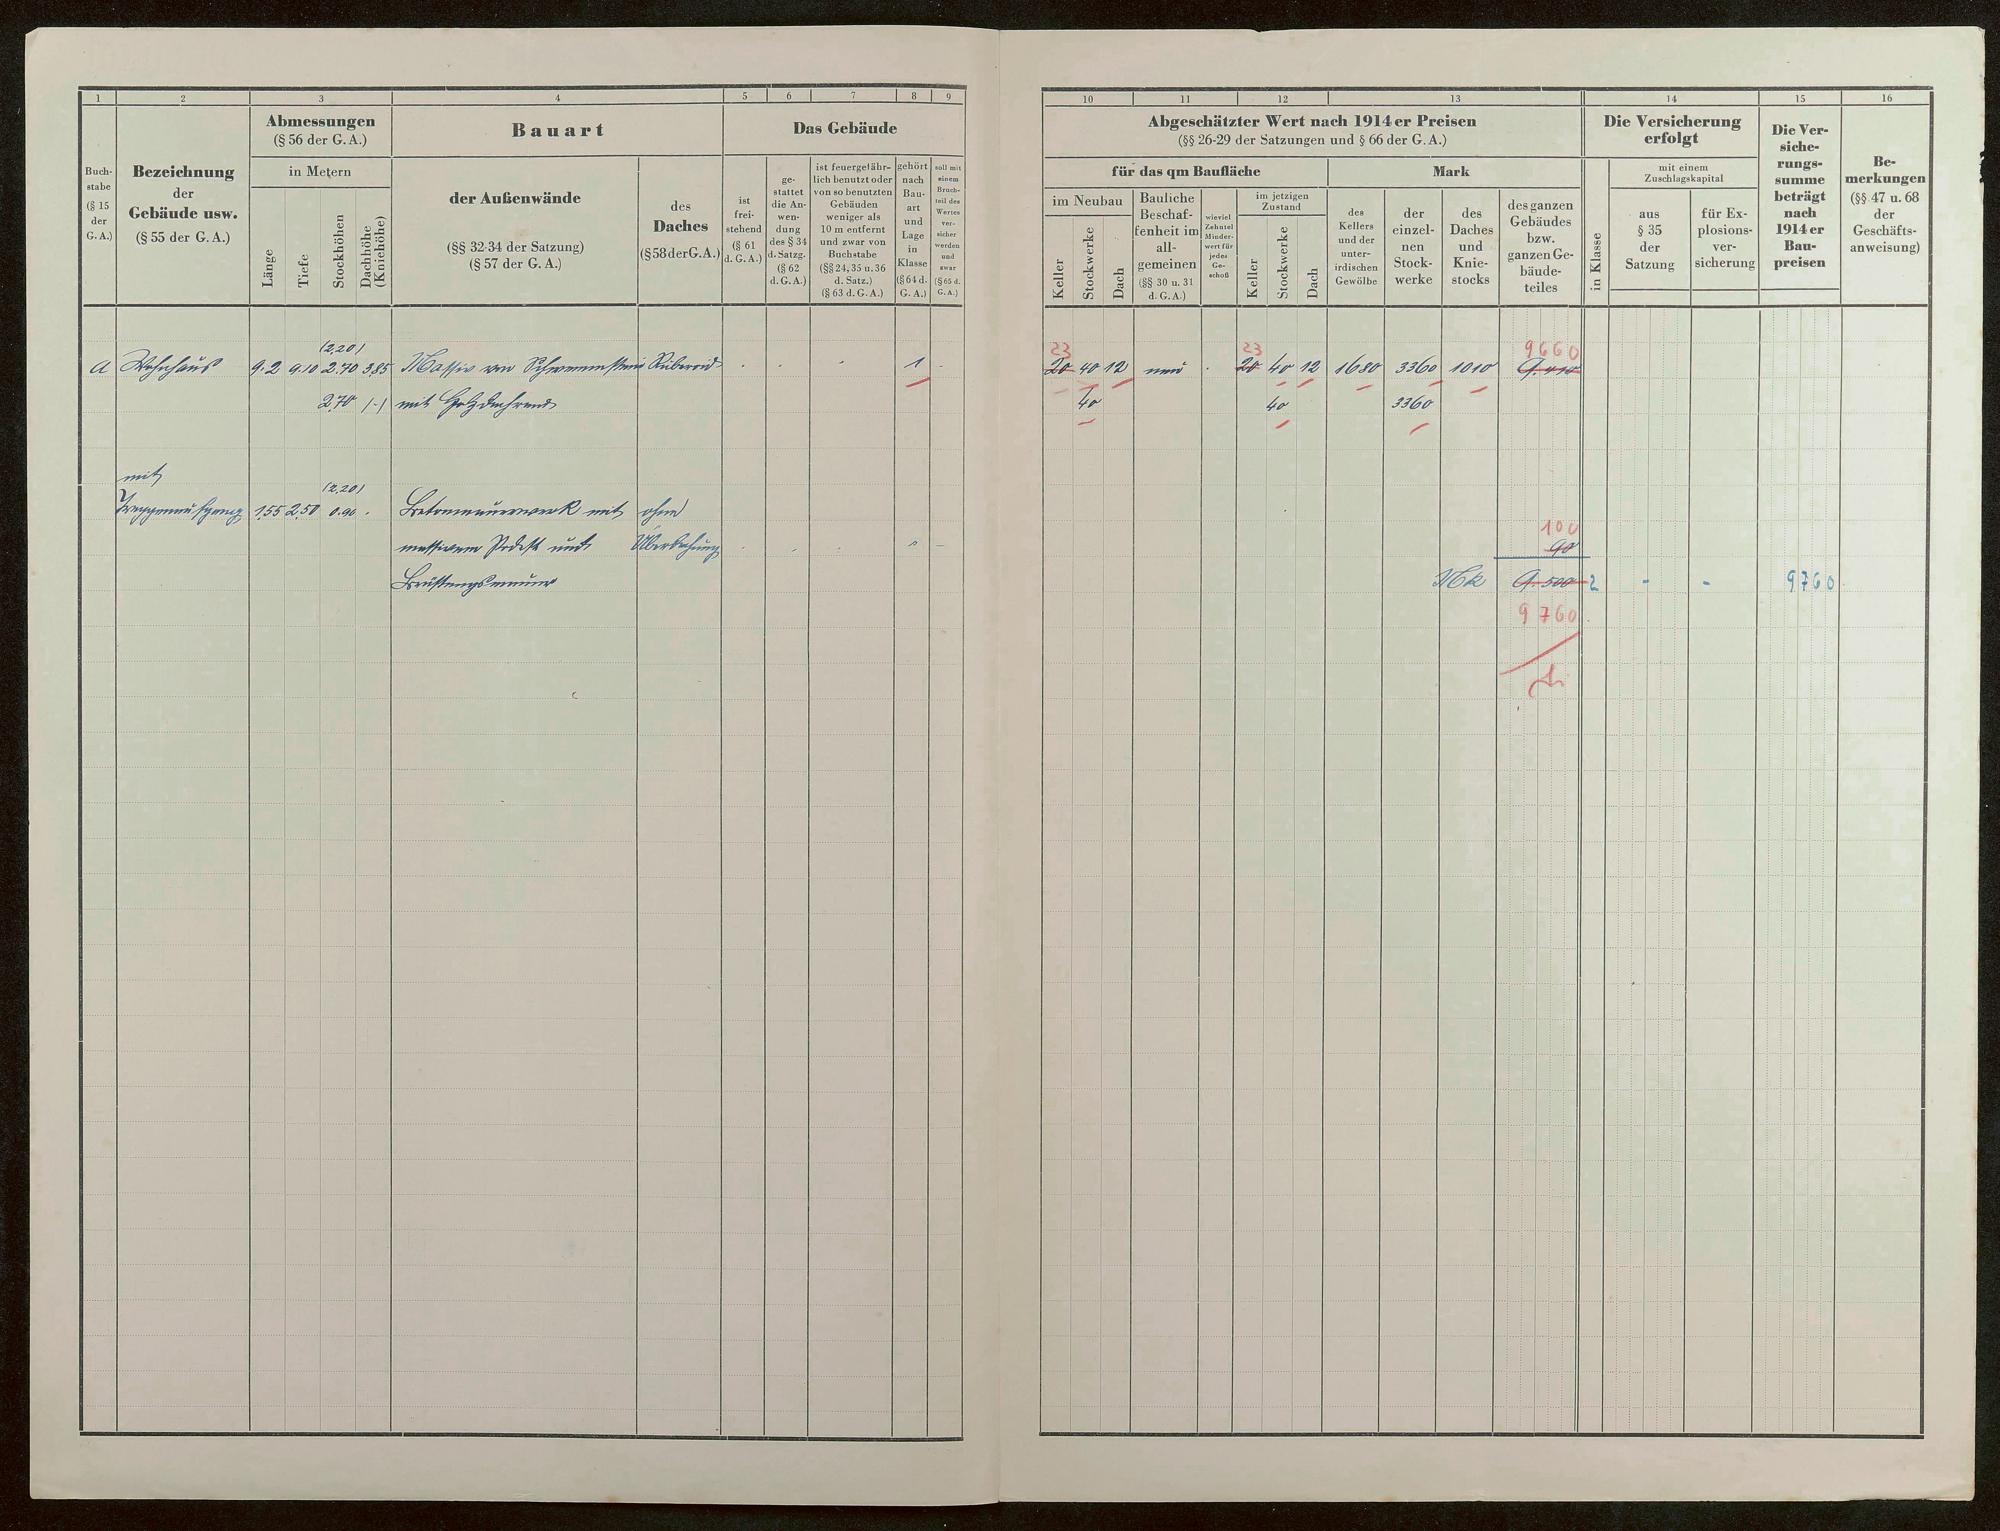 1 2 3 4 5 6 7 8 9
Buch-
stabe
(§ 15
der
G. A.)
Bezeichnung
der
Gebäude usw.
(§ 55 der G. A.)
Abmessungen
(§ 56 der G. A.)
in Metern
Länge
Tiefe
Stockhöhen
Dachhöhe
(Kniehöhe)
Bauart
der Außenwände
(§§ 32-34 der Satzung)
(§ 57 der G. A.)
des
Daches
(§ 58 der G. A.)
Das Gebäude
ist
frei-
stehend
(§ 61
d. G. A.)
ge-
stattet
die An-
wen-
dung
des § 34
d. Satzg.
(§ 62
d. G. A.)
ist feuergefähr-
lich benutzt oder
von so benutzten
Gebäuden
weniger als
10 m entfernt
und zwar von
Buchstabe
(§§ 24, 35 u. 36
d. Satz.)
(§ 63 d. G. A.)
gehört
nach
Bau-
art
und
Lage
in
Klasse
(§ 64 d.
G. A.)
soll mit
einem
Bruch-
teil des
Wertes
ver-
sicher
werden
und
zwar
(§ 65 d.
G. A.)
(2,20)
A Wohnhaus 9.2 9.10 2.70 3.85 Massiv von Schwemmstein Ruberoid 1
2.70 (-) mit Holzdrehrend
mit
(2,20)
Treppenaufgang 1.55 2.50 0.90 Betonmauerwerk mit ohne
massivem Podest und Überdachung
Brüstungsmauer
10 11 12 13 14 15 16
Abgeschätzter Wert nach 1914er Preisen
(§§ 26-29 der Satzungen und § 66 der G. A.)
für das qm Baufläche
im Neubau
Keller
Stockwerke
Dach
Bauliche
Beschaf-
fenheit im
all-
gemeinen
(§§ 30 u. 31
d. G. A.)
wieviel
Zehntel
Minder-
wert für
jedes
Ge-
schoß
im jetzigen
Zustand
Keller
Stockwerke
Dach
Mark
des
Kellers
und der
unter-
irdischen
Gewölbe
der
einzel-
nen
Stock-
werke
des
Daches
und
Knie-
stocks
des ganzen
Gebäudes
bzw.
ganzen Ge-
bäude-
teiles
Die Versicherung
erfolgt
in Klasse
mit einem
Zuschlagskapital
aus
§ 35
der
Satzung
für Ex-
plosions-
ver-
sicherung
Die Ver-
siche-
rungs-
summe
beträgt
nach
1914er
Bau-
preisen
Be-
merkungen
(§§ 47 u. 68
der
Geschäfts-
anweisung)
23 23 9660
20 40 12 neu 20 40 12 1680 3360 1010 9.410
40 40 3360
100
90
Mk 9.500 2 - - 9760
9760